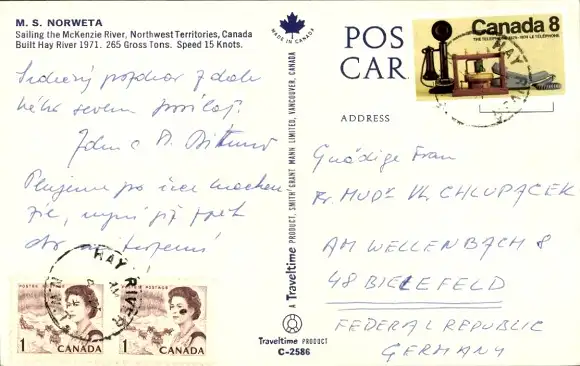 M. S. NORWETA
Sailing the McKenzie River, Northwest Territories, Canada
Built Hay River 1971. 265 Gross Tons. Speed 15 Knots.
Srdečný pozdrav z dale-
kého severu
John a
Plujeme po řece
zie, nyní již zpět
do
MADE IN CANADA
POS
CAR
ADDRESS
Canada 8
HAY RIVER
Gnädige Frau
Fr. MUDr Vl. CHLUPACEK
AM WELLENBACH 8
48 BIELEFELD
FEDERAL REPUBLIC
GERMANY
A Traveltime PRODUCT, SMITH GRANT MANN LIMITED, VANCOUVER, CANADA
Traveltime PRODUCT
C-2586
HAY RIVER
POSTAGE POSTES
1 CANADA
POSTAGE POSTES
1 CANADA